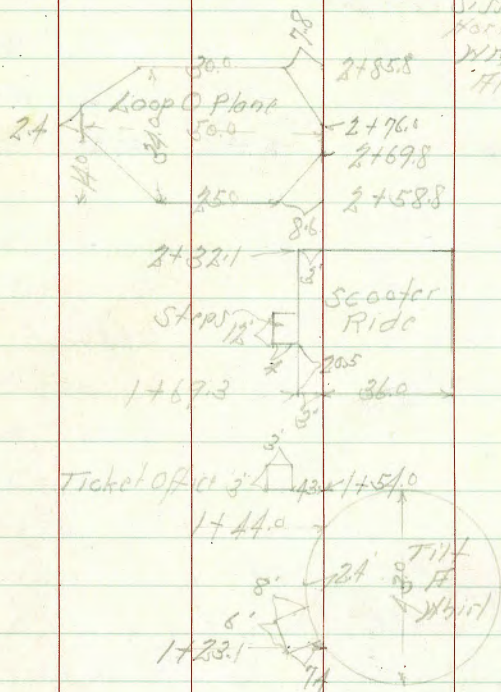 7.8
30.0
2+85.8
Loop O Plane
2.4
50.0
2+76.
34.0
14.0
2+69.8
25.0
2+58.8
8.6
2+32.1
3'
Scooter
Ride
Steps
12'
20.5
1+69.3
36.0
3'
3'
Ticket Office
3'
43
1+54.0
1+44.0
2.4'
Tilt
A
Whirl
8'
6'
1+23.1
7.4